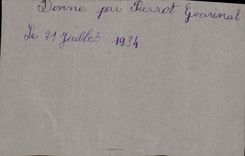 Donné par Pierrot Gourinal
Le 31 Juillet 1934